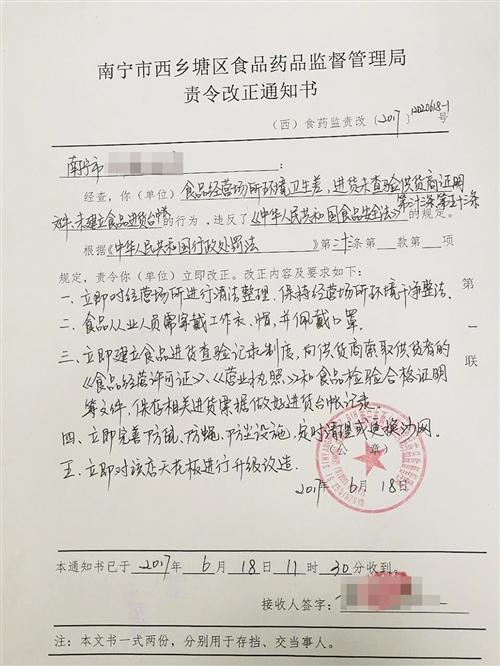 南宁市西乡塘区食品药品监督管理局
责令改正通知书
（西）食药监责改〔2017〕12020618-1号
南宁市 ：
经查，你（单位）食品经营场所环境卫生差，进货未查验供货商证明
文件，未建立食品进货台帐的行为，违反了《中华人民共和国食品安全法》第三十三条第五十三条的规定。
根据《中华人民共和国行政处罚法》第二十三条第 款第 项
规定，责令你（单位）立即改正。改正内容及要求如下：
一、立即对经营场所进行清洁整理，保持经营场所环境干净整洁。
二、食品从业人员需穿戴工作衣、帽，并佩戴口罩。
三、立即建立食品进货查验记录制度，向供货商索取供货者的
《食品经营许可证》、《营业执照》和食品检验合格证明
等文件，保存相关进货票据做好进货台帐记录。
四、立即完善防鼠、防蝇、防尘设施，定时清理或更换沙网。
五、立即对该店天花板进行升级改造。
（公 章）
2017年 6月 18日
第一联
本通知书已于 2017年 6月 18日 11时 30分收到。
接收人签字：
注：本文书一式两份，分别用于存档、交当事人。